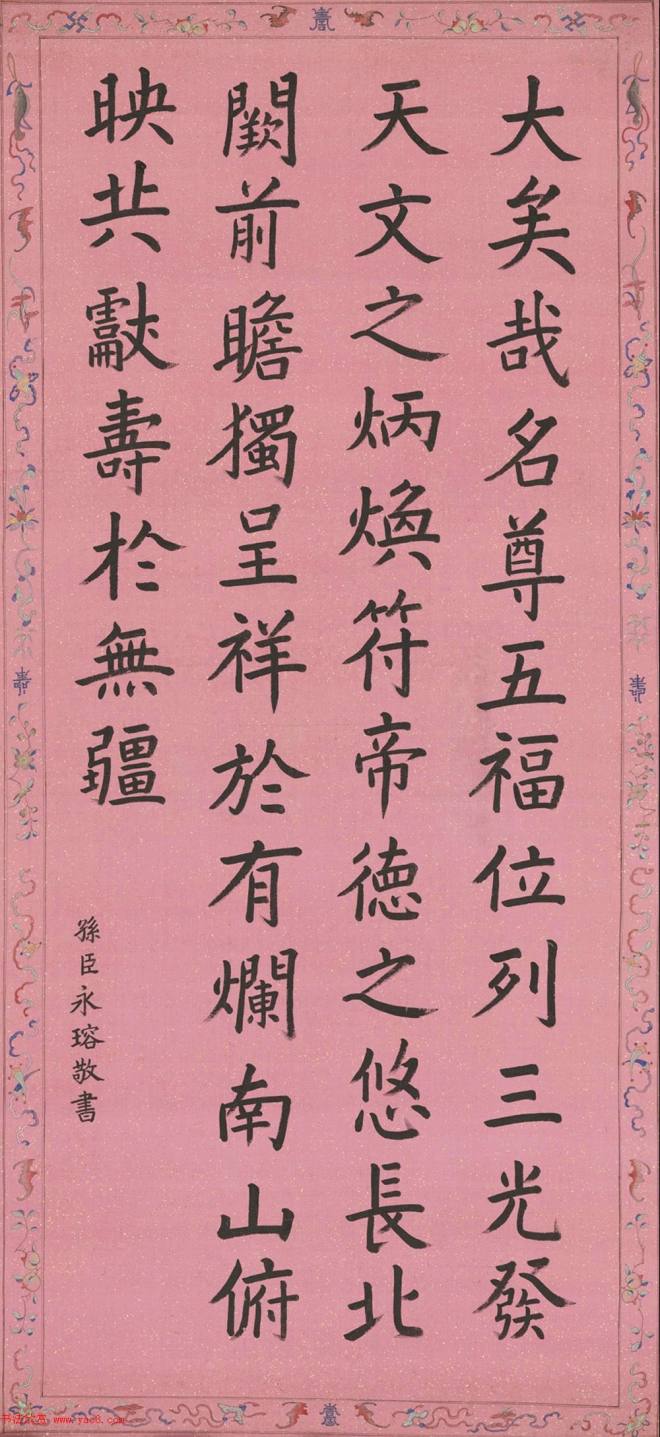 大矣哉名尊五福位列三光發
天文之炳煥符帝德之悠長北
闕前瞻獨呈祥於有爛南山俯
映共獻壽於無疆
孫臣永瑢敬書
www.yac8.com